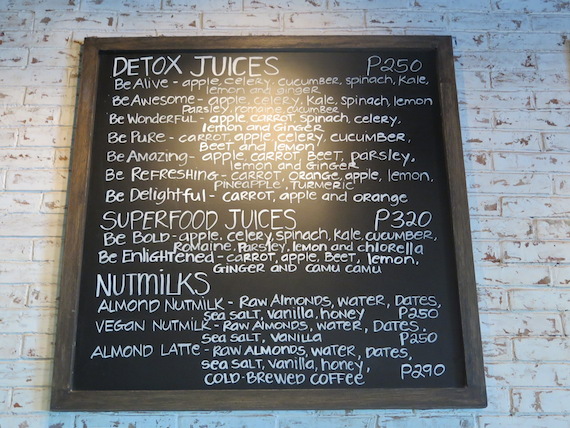 DETOX JUICES P250
Be Alive - apple, celery, cucumber, spinach, kale,
lemon and ginger
Be Awesome - apple, celery, kale, spinach, lemon
Parsley, romaine, cucumber
Be Wonderful - apple, carrot, spinach, celery,
lemon and Ginger
Be Pure - carrot, apple, celery, cucumber,
Beet and lemon
Be Amazing - apple, carrot, Beet, parsley,
lemon and Ginger
Be Refreshing - carrot, orange, apple, lemon,
PINEAPPLE, TURMERIC
Be Delightful - carrot, apple and orange
SUPERFOOD JUICES P320
Be BOLD - apple, celery, spinach, kale, cucumber,
Romaine, Parsley, lemon and chlorella
Be Enlightened - carrot, apple, Beet, lemon,
GINGER AND CAMU CAMU
NUTMILKS
ALMOND NUTMILK - RAW ALMONDS, WATER, DATES,
sea salt, vanilla, honey P250
VEGAN NUTMILK - RAW ALMONDS, WATER, DATES,
sea salt, vanilla P250
ALMOND LATTE - RAW ALMONDS, WATER, DATES,
sea salt, vanilla, honey, P290
COLD-BREWED COFFEE